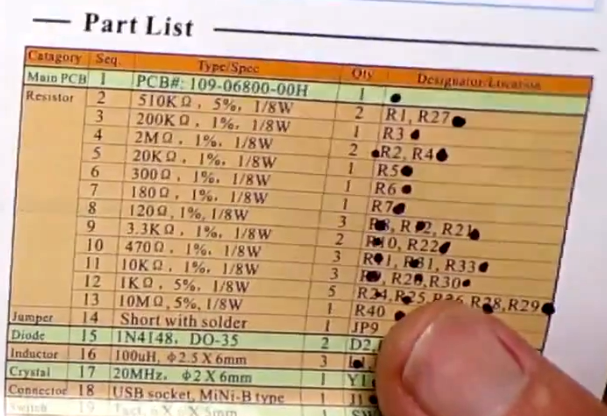 Part List
Catagory Seq. Type/Spec Qty Designator/Location
Main PCB 1 PCB#: 109-06800-00H 1
Resistor 2 510KΩ, 5%, 1/8W 2 R1, R27
3 200KΩ, 1%, 1/8W 1 R3
4 2MΩ, 1%, 1/8W 2 R2, R4
5 20KΩ, 1%, 1/8W 1 R5
6 300Ω, 1%, 1/8W 1 R6
7 180Ω, 1%, 1/8W 1 R7
8 120Ω, 1%, 1/8W 3 R8, R12, R21
9 3.3KΩ, 1%, 1/8W 2 R10, R22
10 470Ω, 1%, 1/8W 3 R11, R31, R33
11 10KΩ, 1%, 1/8W 3 R9, R20, R30
12 1KΩ, 5%, 1/8W 5 R24, R25, R26, R28, R29
13 10MΩ, 5%, 1/8W 1 R40
Jumper 14 Short with solder 1 JP9
Diode 15 1N4148, DO-35 2 D2,
Inductor 16 100uH, Φ2.5X6mm 3
Crystal 17 20MHz, Φ2X6mm 1 Y1
Connector 18 USB socket, MiNi-B type 1 J1
Switch 19